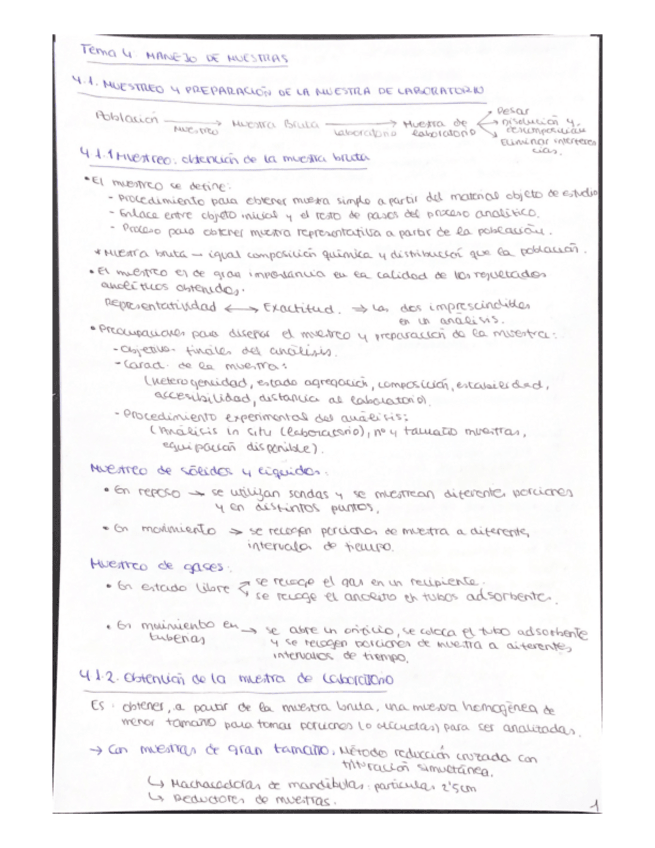 Tema 4 MANEJO DE MUESTRAS
4.1. MUESTREO Y PREPARACIÓN DE LA MUESTRA DE LABORATORIO
Población → Muestra Bruta → Muestra de laboratorio
muestreo laboratorio
Pesar
Disolución y descomposición
Eliminar interferencias.
4.1.1 Muestreo: obtención de la muestra bruta
• El muestreo se define:
- Procedimiento para obtener muestra simple a partir del material objeto de estudio
- Enlace entre objeto inicial y el resto de pasos del proceso analítico.
- Proceso para obtener muestra representativa a partir de la población.
* Muestra bruta — igual composición química y distribución que la población.
• El muestreo es de gran importancia en la calidad de los resultados
analíticos obtenidos.
Representatividad ↔ Exactitud. → las dos imprescindibles
en un análisis.
• Precauciones para diseñar el muestreo y preparación de la muestra:
- Objetivos finales del análisis.
- Caract. de la muestra:
(Heterogeneidad, estado agregación, composición, estabilidad,
accesibilidad, distancia al laboratorio).
- Procedimiento experimental del análisis:
(Análisis in situ (laboratorio), nº y tamaño muestras,
equipación disponible).
Muestreo de sólidos y líquidos:
• En reposo → se utilizan sondas y se muestrean diferentes porciones
y en distintos puntos.
• En movimiento → se recogen porciones de muestra a diferentes
intervalos de tiempo.
Muestreo de gases:
• En estado libre
se recoge el gas en un recipiente.
se recoge el analito en tubos adsorbentes.
• En movimiento en → se abre un orificio, se coloca el tubo adsorbente
tuberías y se recogen porciones de muestra a diferentes
intervalos de tiempo.
4.1.2. Obtención de la muestra de laboratorio
Es: obtener, a partir de la muestra bruta, una muestra homogénea de
menor tamaño para tomar porciones (o alícuotas) para ser analizadas.
→ Con muestras de gran tamaño: Método reducción cruzada con
trituración simultánea.
↳ Machacadoras de mandíbulas: partículas 2'5cm
↳ Reductores de muestras.
1